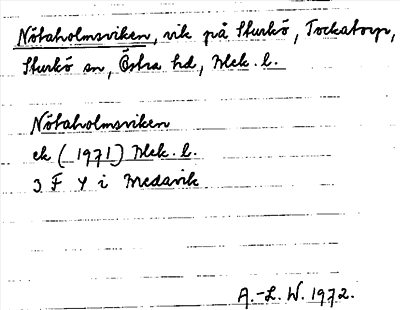 Nötaholmsviken, vik på Sturkö, Tockatorp,
Sturkö sn, Östra hd, Blek. l.
Nötaholmsviken
ek (1971) Blek. l.
3 F Y i Bredavik
A.-L. W. 1972.